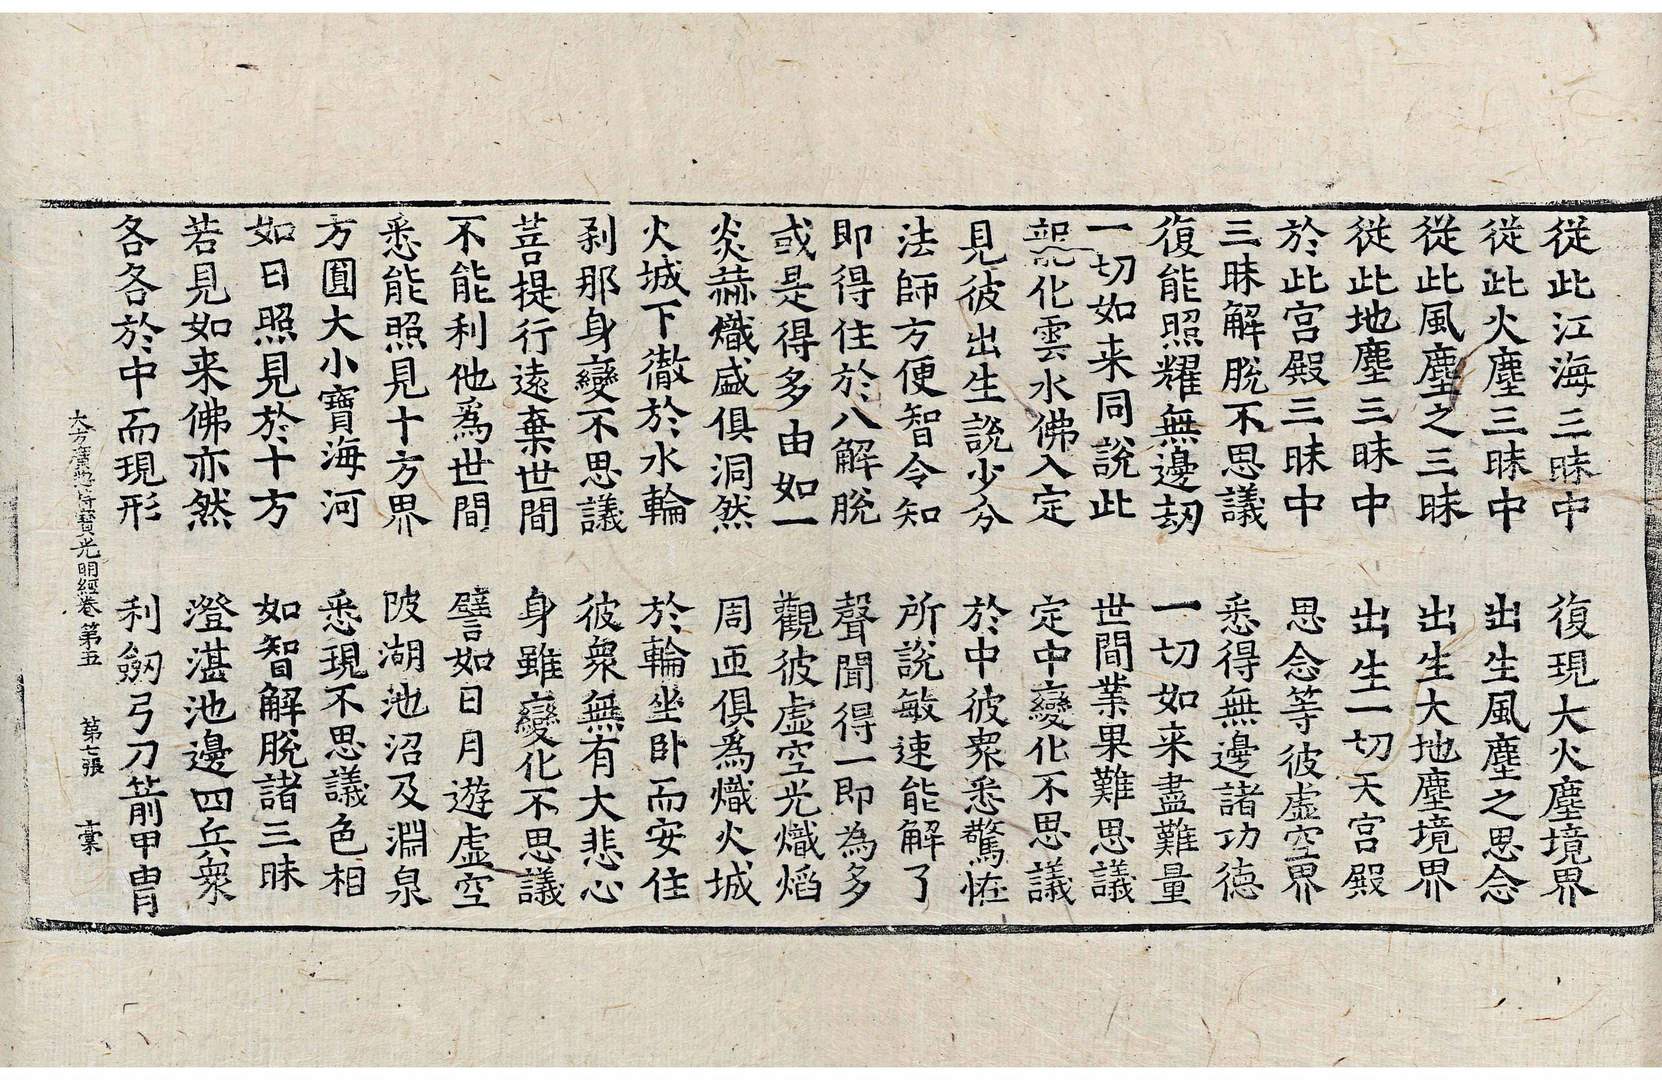 從此江海三昧中　復現大火塵境界
從此火塵三昧中　出生風塵之思念
從此風塵之三昧　出生大地塵境界
從此地塵三昧中　出生一切天宮殿
於此宮殿三昧中　思念等彼虛空界
三昧解脫不思議　悉得無邊諸功德
復能照耀無邊刧　一切如来盡難量
一切如来同說此　世間業果難思議
化雲水佛入定　定中變化不思議
見彼出生說少分　於中彼衆悉驚恠
法師方便智令知　所說敏速能解了
即得住於八解脫　聲聞得一即為多
或是得多由如一　觀彼虛空光熾焰
炎赫熾盛俱洞然　周帀俱爲熾火城
火城下徹於水輪　於輪坐卧而安住
剎那身變不思議　彼衆無有大悲心
菩提行遠棄世間　身雖變化不思議
不能利他爲世間　譬如日月遊虛空
悉能照見十方界　陂湖池沼及淵泉
方圓大小寶海河　悉現不思議色相
如日照見於十方　如智解脫諸三昧
若見如来佛亦然　澄湛池邊四兵衆
各各於中而現形　利劒弓刀箭甲冑
大方廣揔持寶光明經卷第五　第七張　槀